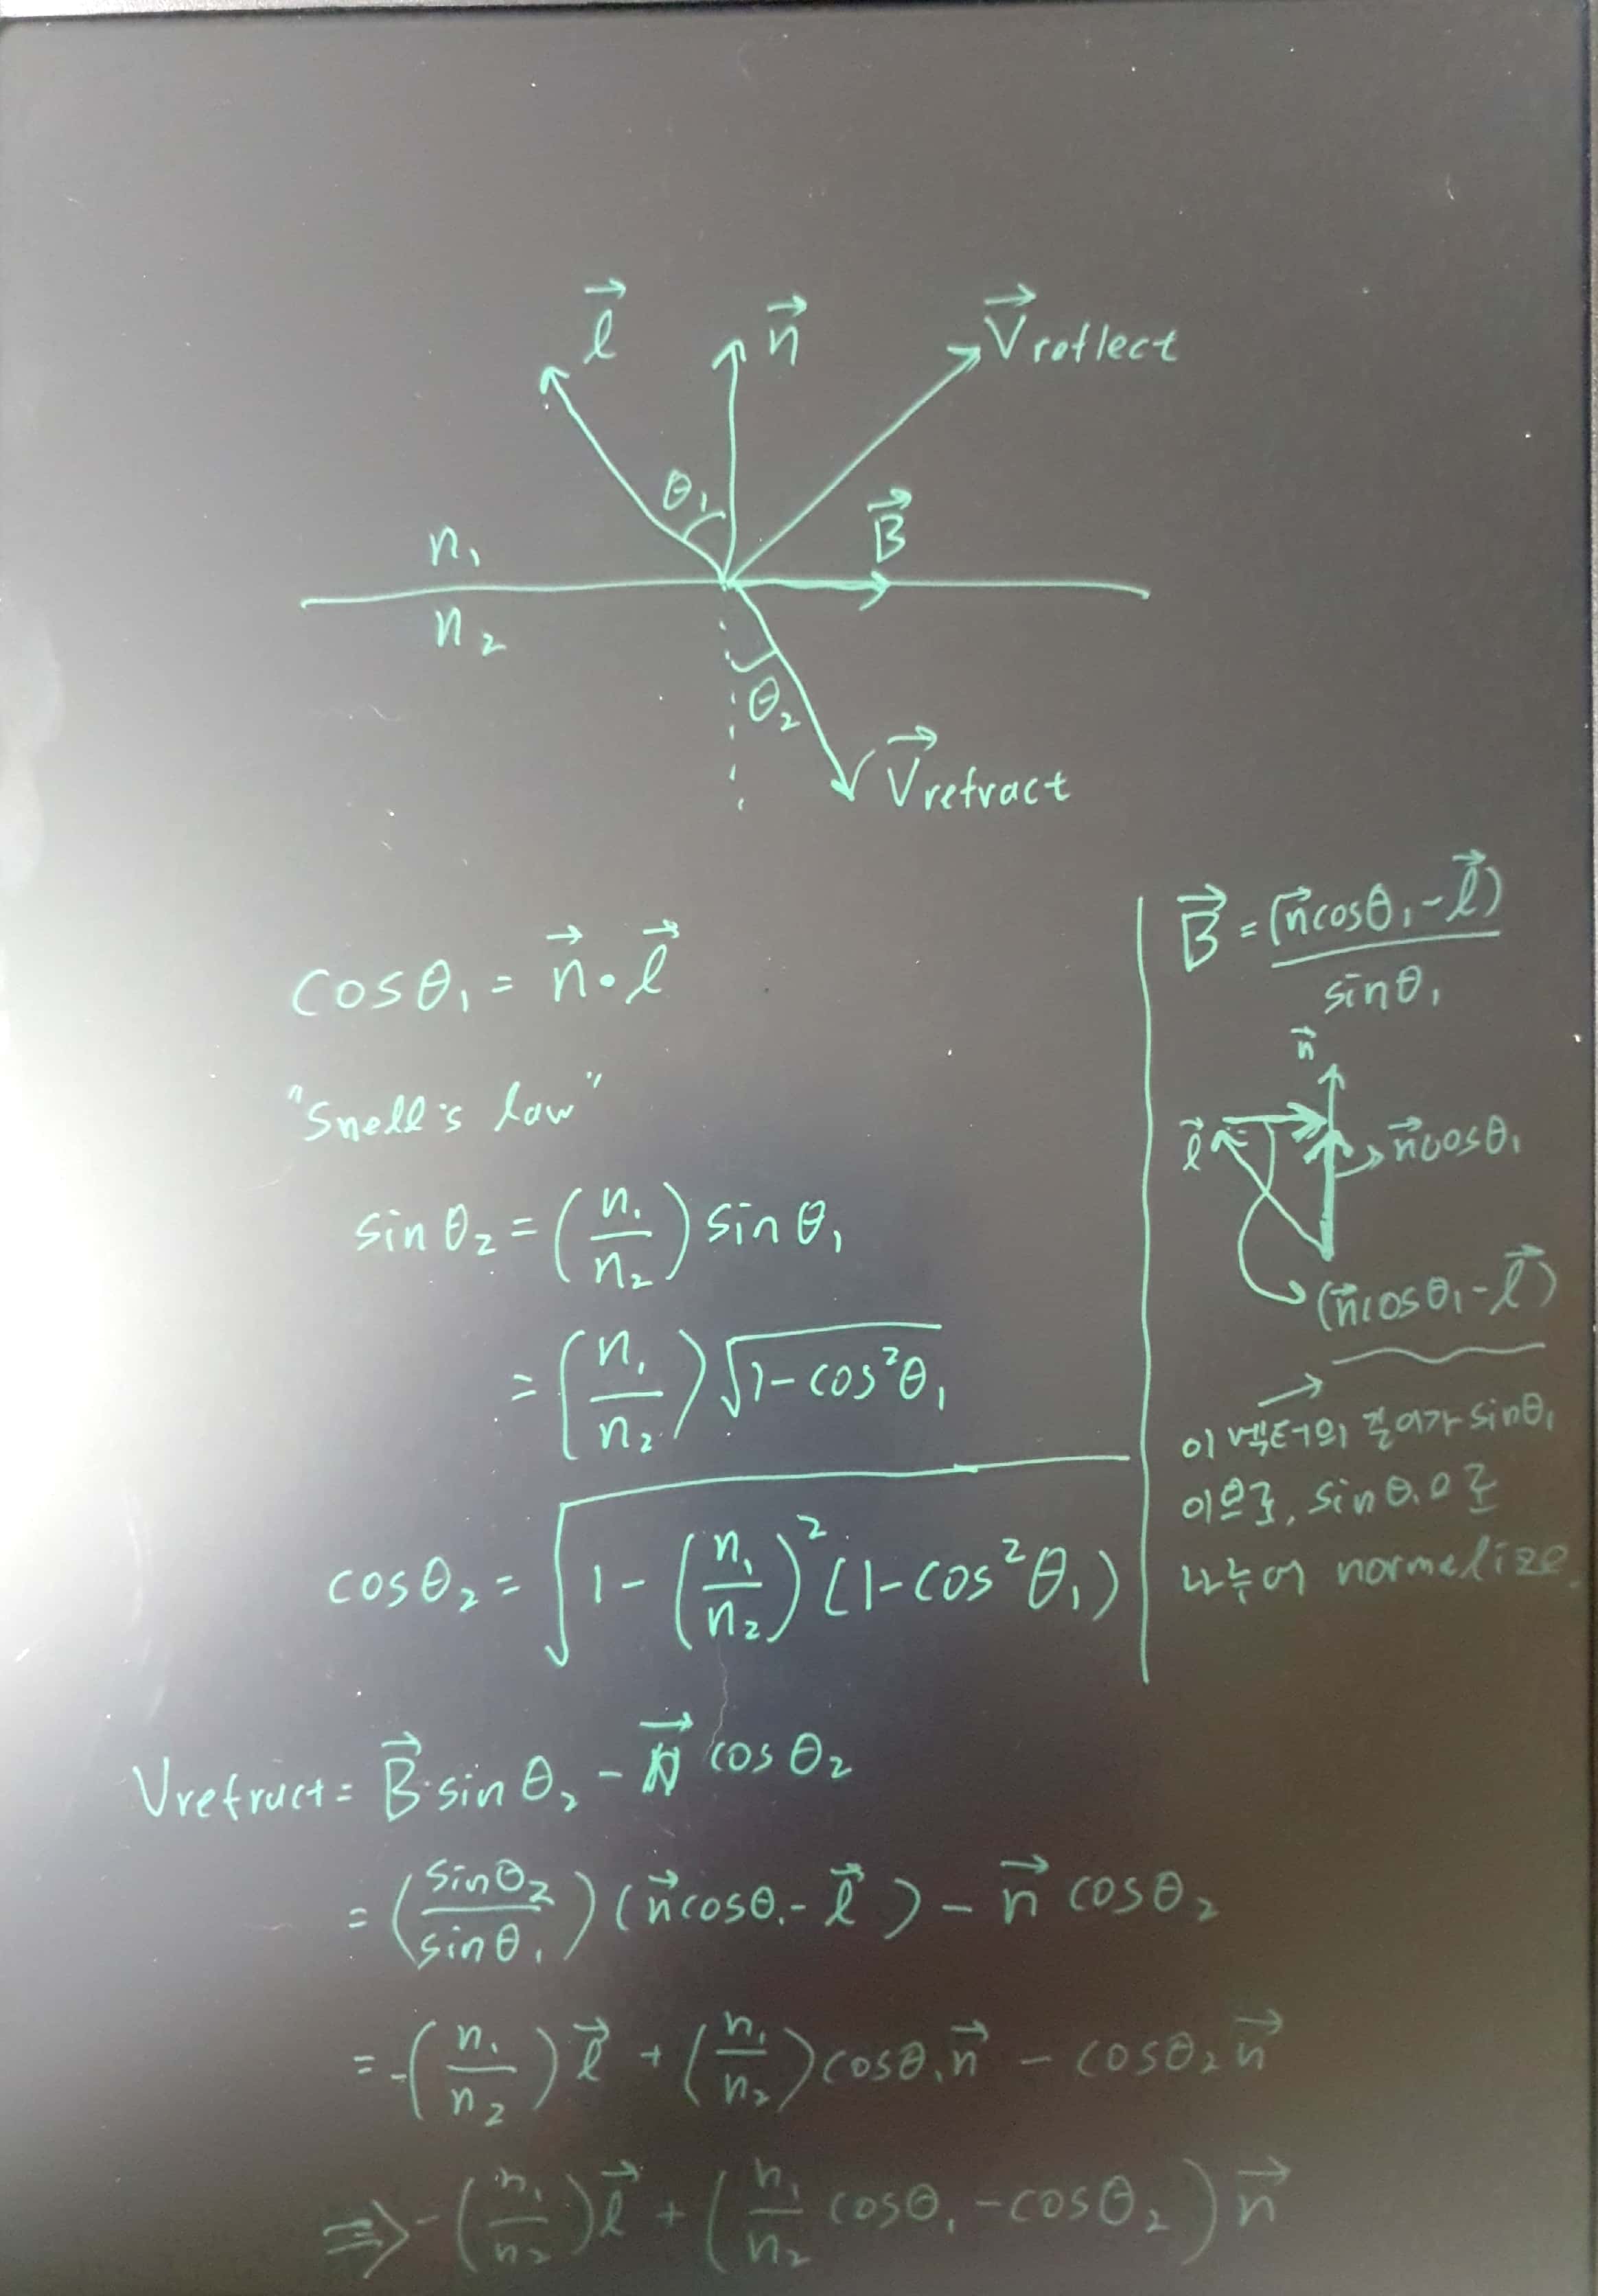 l⃗ n⃗ V⃗reflect
θ₁
n₁ B⃗
n₂
θ₂
V⃗refract
cosθ₁ = n⃗·l⃗
"Snell's law"
sinθ₂ = (n₁/n₂) sinθ₁
= (n₁/n₂) √(1-cos²θ₁)
cosθ₂ = √(1-(n₁/n₂)²(1-cos²θ₁))
B⃗ = (n⃗cosθ₁-l⃗)/sinθ₁
n⃗
l⃗ n⃗cosθ₁
(n⃗cosθ₁-l⃗)
→ 이 벡터의 길이가 sinθ₁
이므로, sinθ₁으로
나누어 normelize.
Vrefract = B⃗·sinθ₂ - N⃗ cosθ₂
= (sinθ₂/sinθ₁)(n⃗cosθ₁-l⃗) - n⃗ cosθ₂
= -(n₁/n₂)l⃗ + (n₁/n₂)cosθ₁n⃗ - cosθ₂n⃗
⇒ -(n₁/n₂)l⃗ + (n₁/n₂ cosθ₁-cosθ₂)n⃗